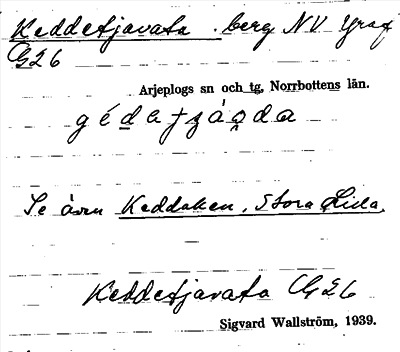 Keddetjavata. berg NV Graf
G26
Arjeplogs sn och tg, Norrbottens län.
Se även Keddaken, Stora & Lilla.
Keddetjavata G26
Sigvard Wallström, 1939.